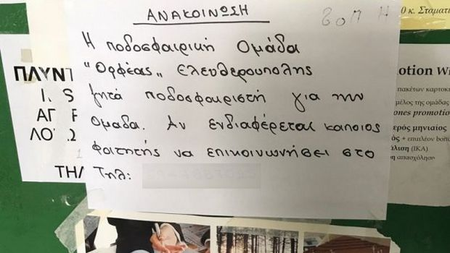 ΑΝΑΚΟΙΝΩΣΗ
Η ποδοσφαιρική Ομάδα
"Ορφέας" Ελευθερουπολης
ζητά ποδοσφαιριστή για την
ομαδα. Αν ενδιαφέρεται καποιος
φοιτητής να επικοινωνήσει στο
Τηλ:
ΠΛΥΝΤ
ΤΗΛ
κ. Σταματι
otion Wi
πακέτων καρτοκι
μέλος της ομάδας
ones promotio
ερός μηνιαίος
+ επιπλέον
λιση (ΙΚΑ)
απασχόληση»